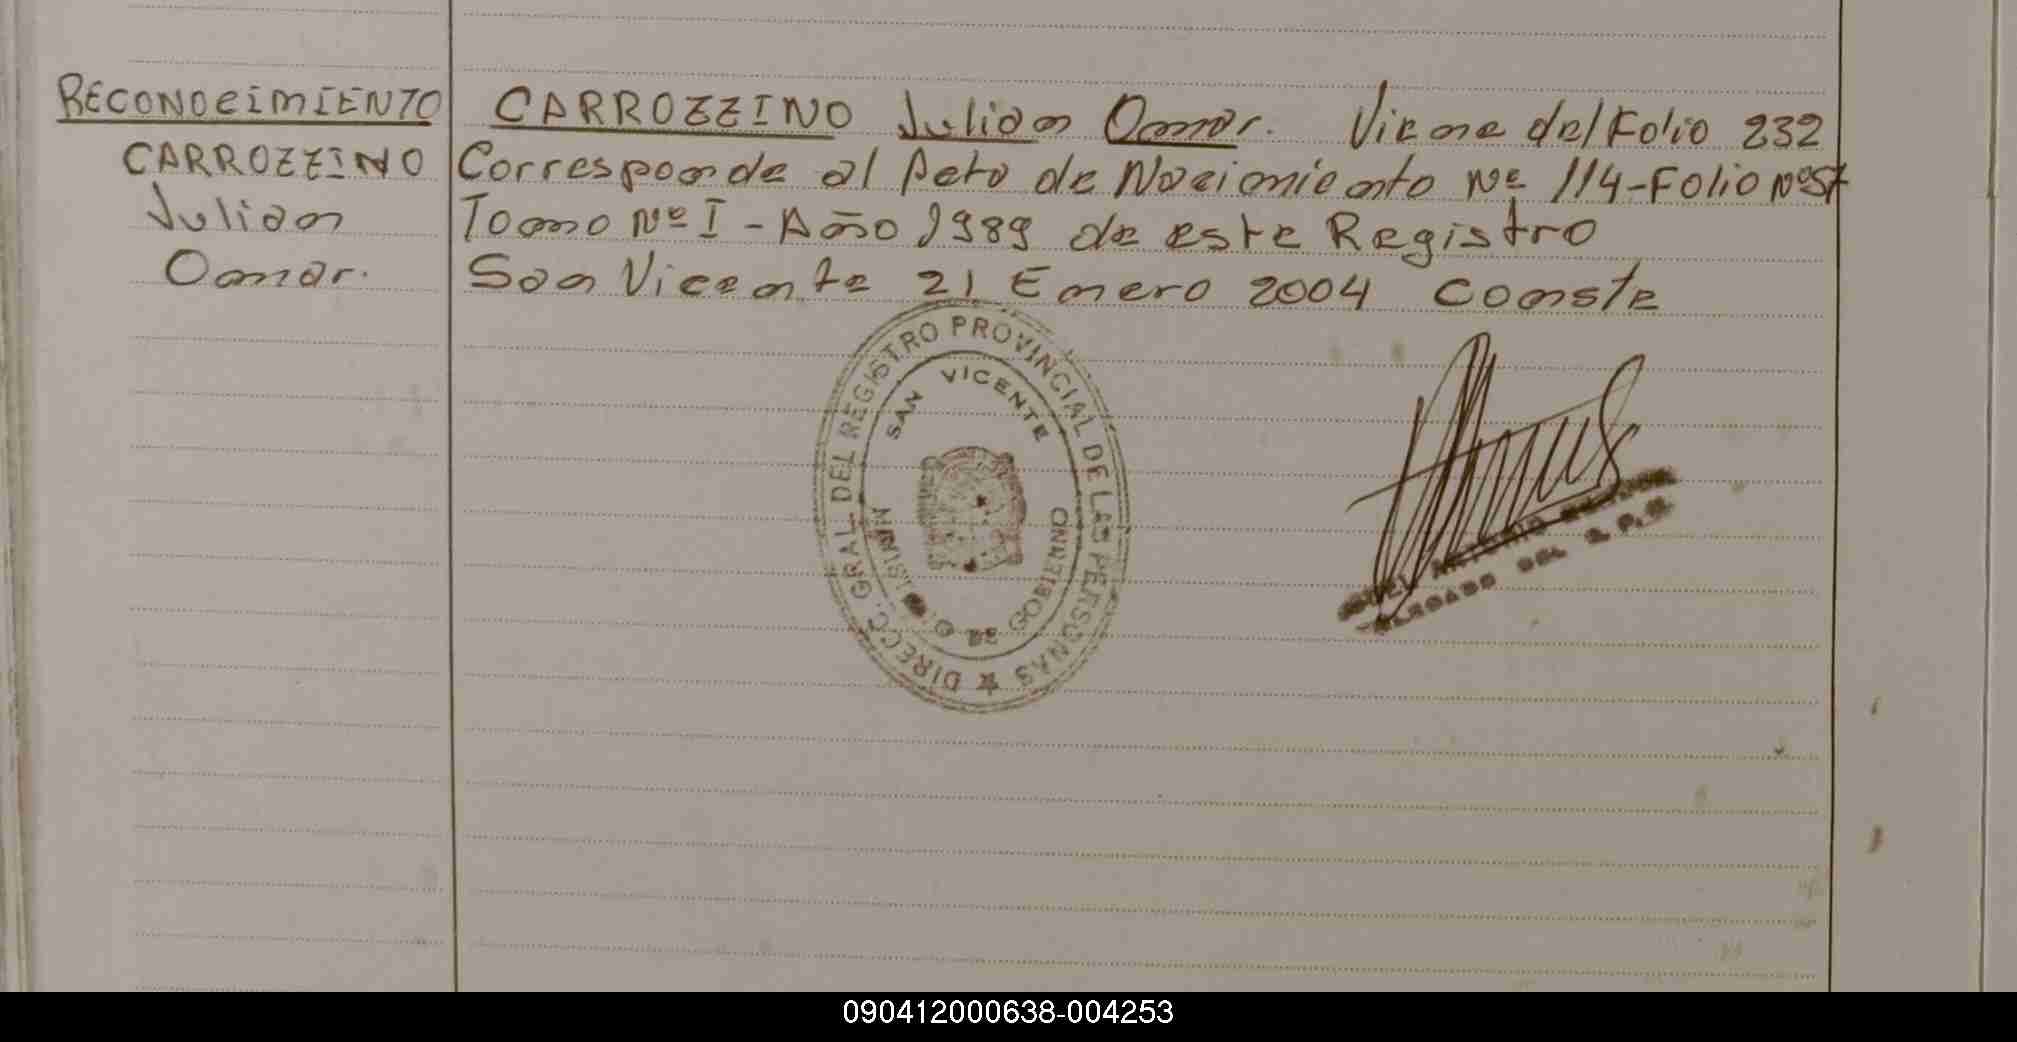 RECONOCIMIENTO
CARROZZINO
Julian
Omar.
CARROZZINO Julian Omar. Viene del Folio 232
Corresponde al Acta de Nacimiento Nº 114-Folio Nº57
Tomo Nº I - Año 1989 de este Registro
San Vicente 21 Enero 2004 Conste
DIRECC. GRAL. DEL REGISTRO PROVINCIAL DE LAS PERSONAS
SAN VICENTE
DE GOBIERNO
ANTONIO
DEL R.P.P.
090412000638-004253